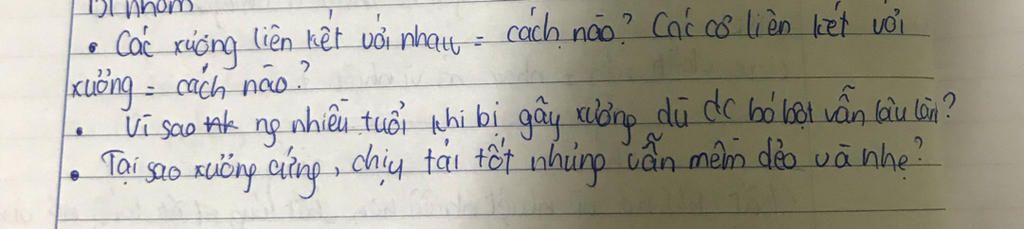 đi nhóm
• Các xương liên kết với nhau = cách nào? Các cơ liên kết với
xương = cách nào?
• Vì sao ng nhiều tuổi khi bị gãy xương dù dc bó bột vẫn lâu lành?
• Tại sao xương cứng, chịu tải tốt nhưng vẫn mềm dẻo và nhẹ?